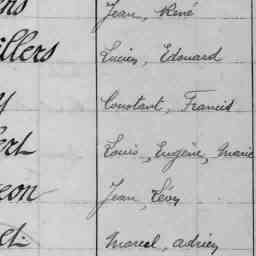 Jean, René
illers Lucien, Edouard
y Constant, Francis
ert Louis, Eugène, Marie
eon Jean, Lévy
et Marcel, Adrien